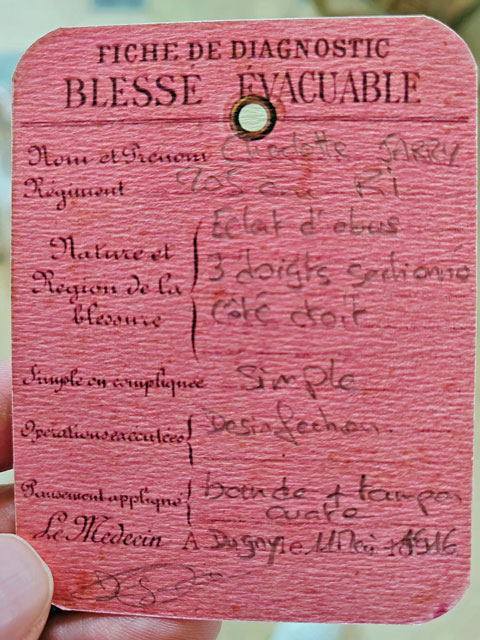 FICHE DE DIAGNOSTIC
BLESSÉ ÉVACUABLE
Nom et Prénom Charlotte JARRY
Régiment 205 eme RI
Nature et Région de la blessure
Eclat d'obus
3 doigts sectionné
Côté droit
Simple ou compliquée Simple
Opérations executées Desinfection.
Pansement appliqué bande + tampon
ouate
Le Médecin A Dugny le Mai 1916